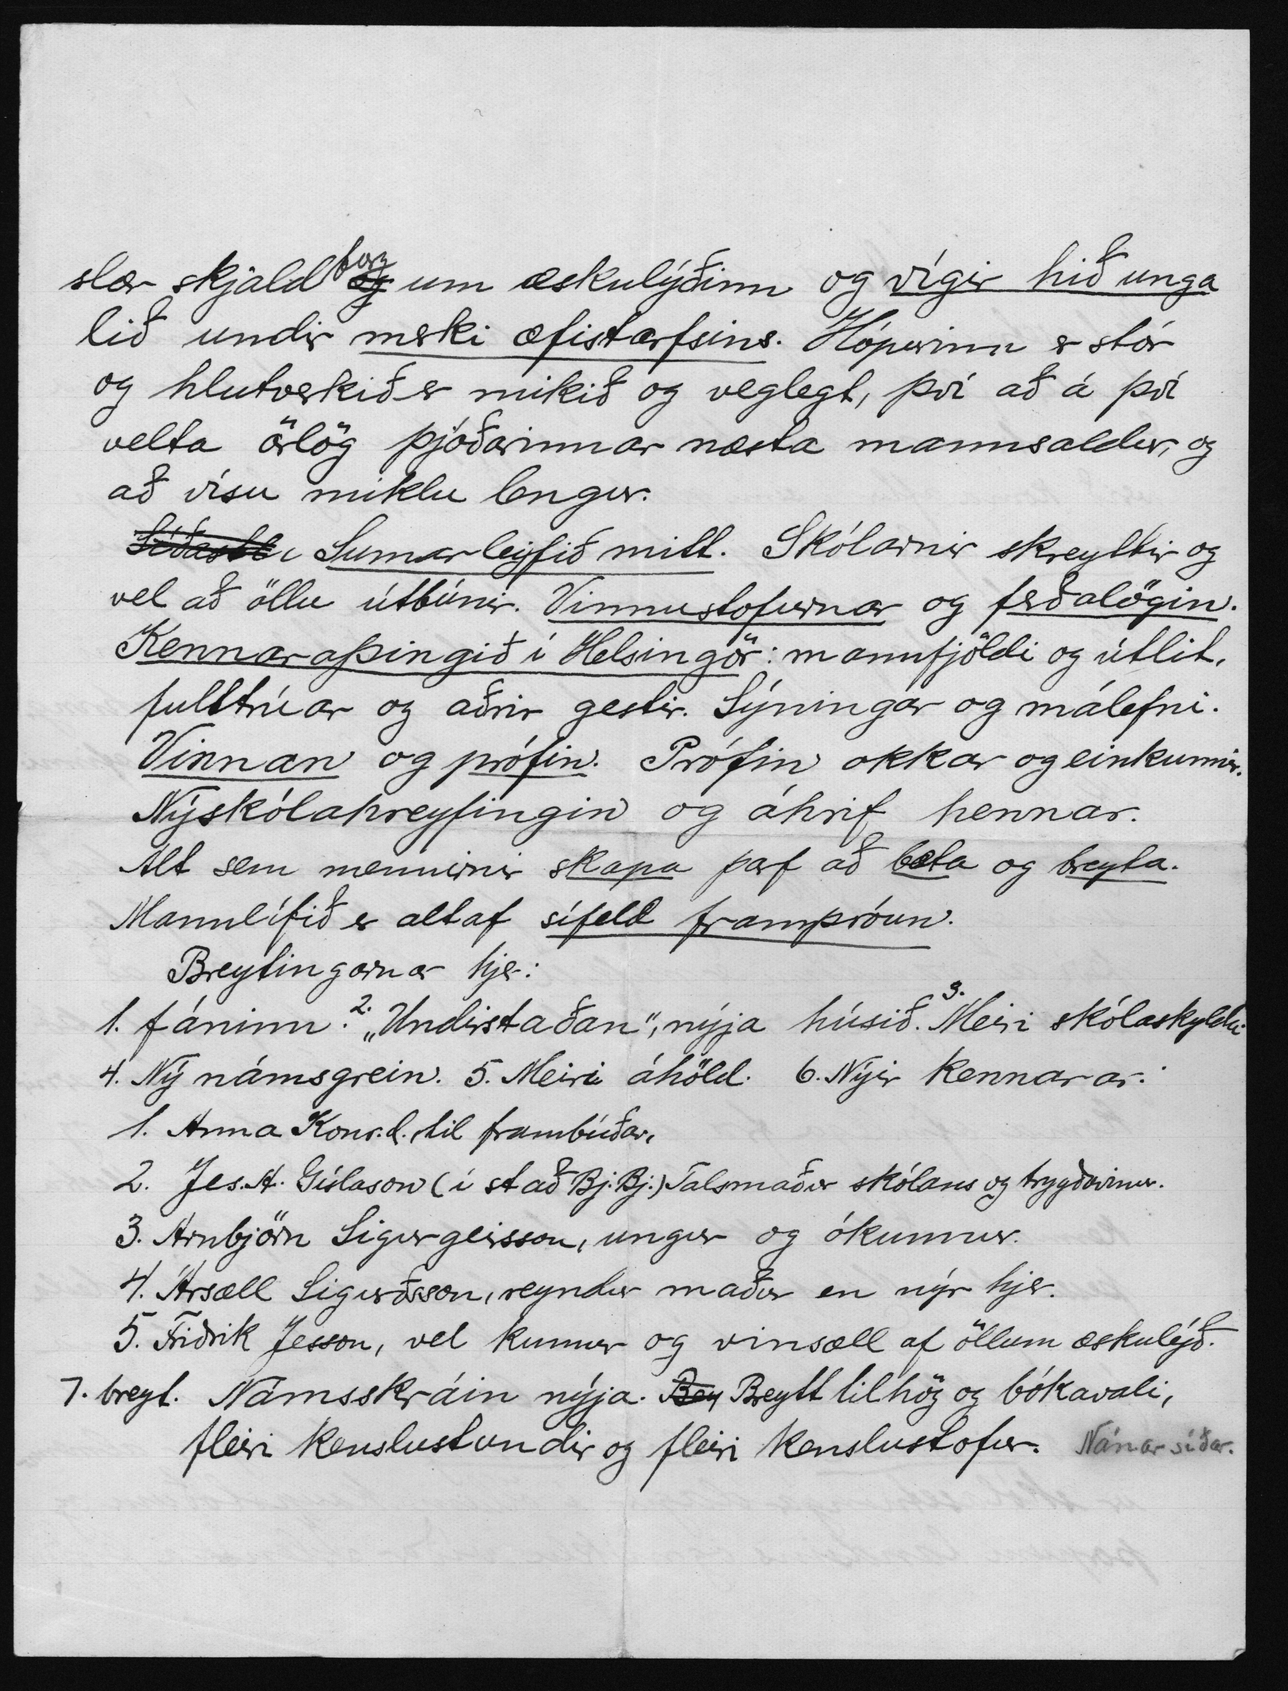 slær skjaldborg um æskulýðinn og vígir hið unga
lið undir merki æfistarfsins. Hópurinn er stór
og hlutverkið er mikið og veglegt, því að á því
velta örlög þjóðarinnar næsta mannsaldur, og
að vísu miklu lengur.
Síðastl. Sumarleyfið mitt. Skólarnir skreyttir og
vel að öllu útbúnir. Vinnustofurnar og ferðalögin.
Kennaraþingið í Helsingör: mannfjöldi og útlit,
fulltrúar og aðrir gestir. Sýningar og málefni.
Vinnan og prófin. Prófin okkar og einkunnir.
Nýskólahreyfingin og áhrif hennar.
Alt sem mennirnir skapa þarf að bæta og breyta.
Mannlífið er altaf sífeld framþróun.
Breytingarnar hjer:
1. fáninn. 2. „Undirstaðan“, nýja húsið. 3. Meiri skólaskylda
4. Ný námsgrein. 5. Meiri áhöld. 6. Nýir kennarar:
1. Anna Konr.d. til frambúðar.
2. Jes. A. Gíslason (í stað Bj. Bj.) Talsmaður skólans og trygðavinur.
3. Arnbjörn Sigurgeirsson, ungur og ókunnur.
4. Ársæll Sigurðsson, reyndur maður en nýr hjer.
5. Friðrik Jesson, vel kunnur og vinsæll af öllum æskulýð.
7. breyt. Námsskráin nýja. Bey Breytt tilhög og bókavali,
fleiri kenslustundir og fleiri kenslustofur. Nánar síðar.